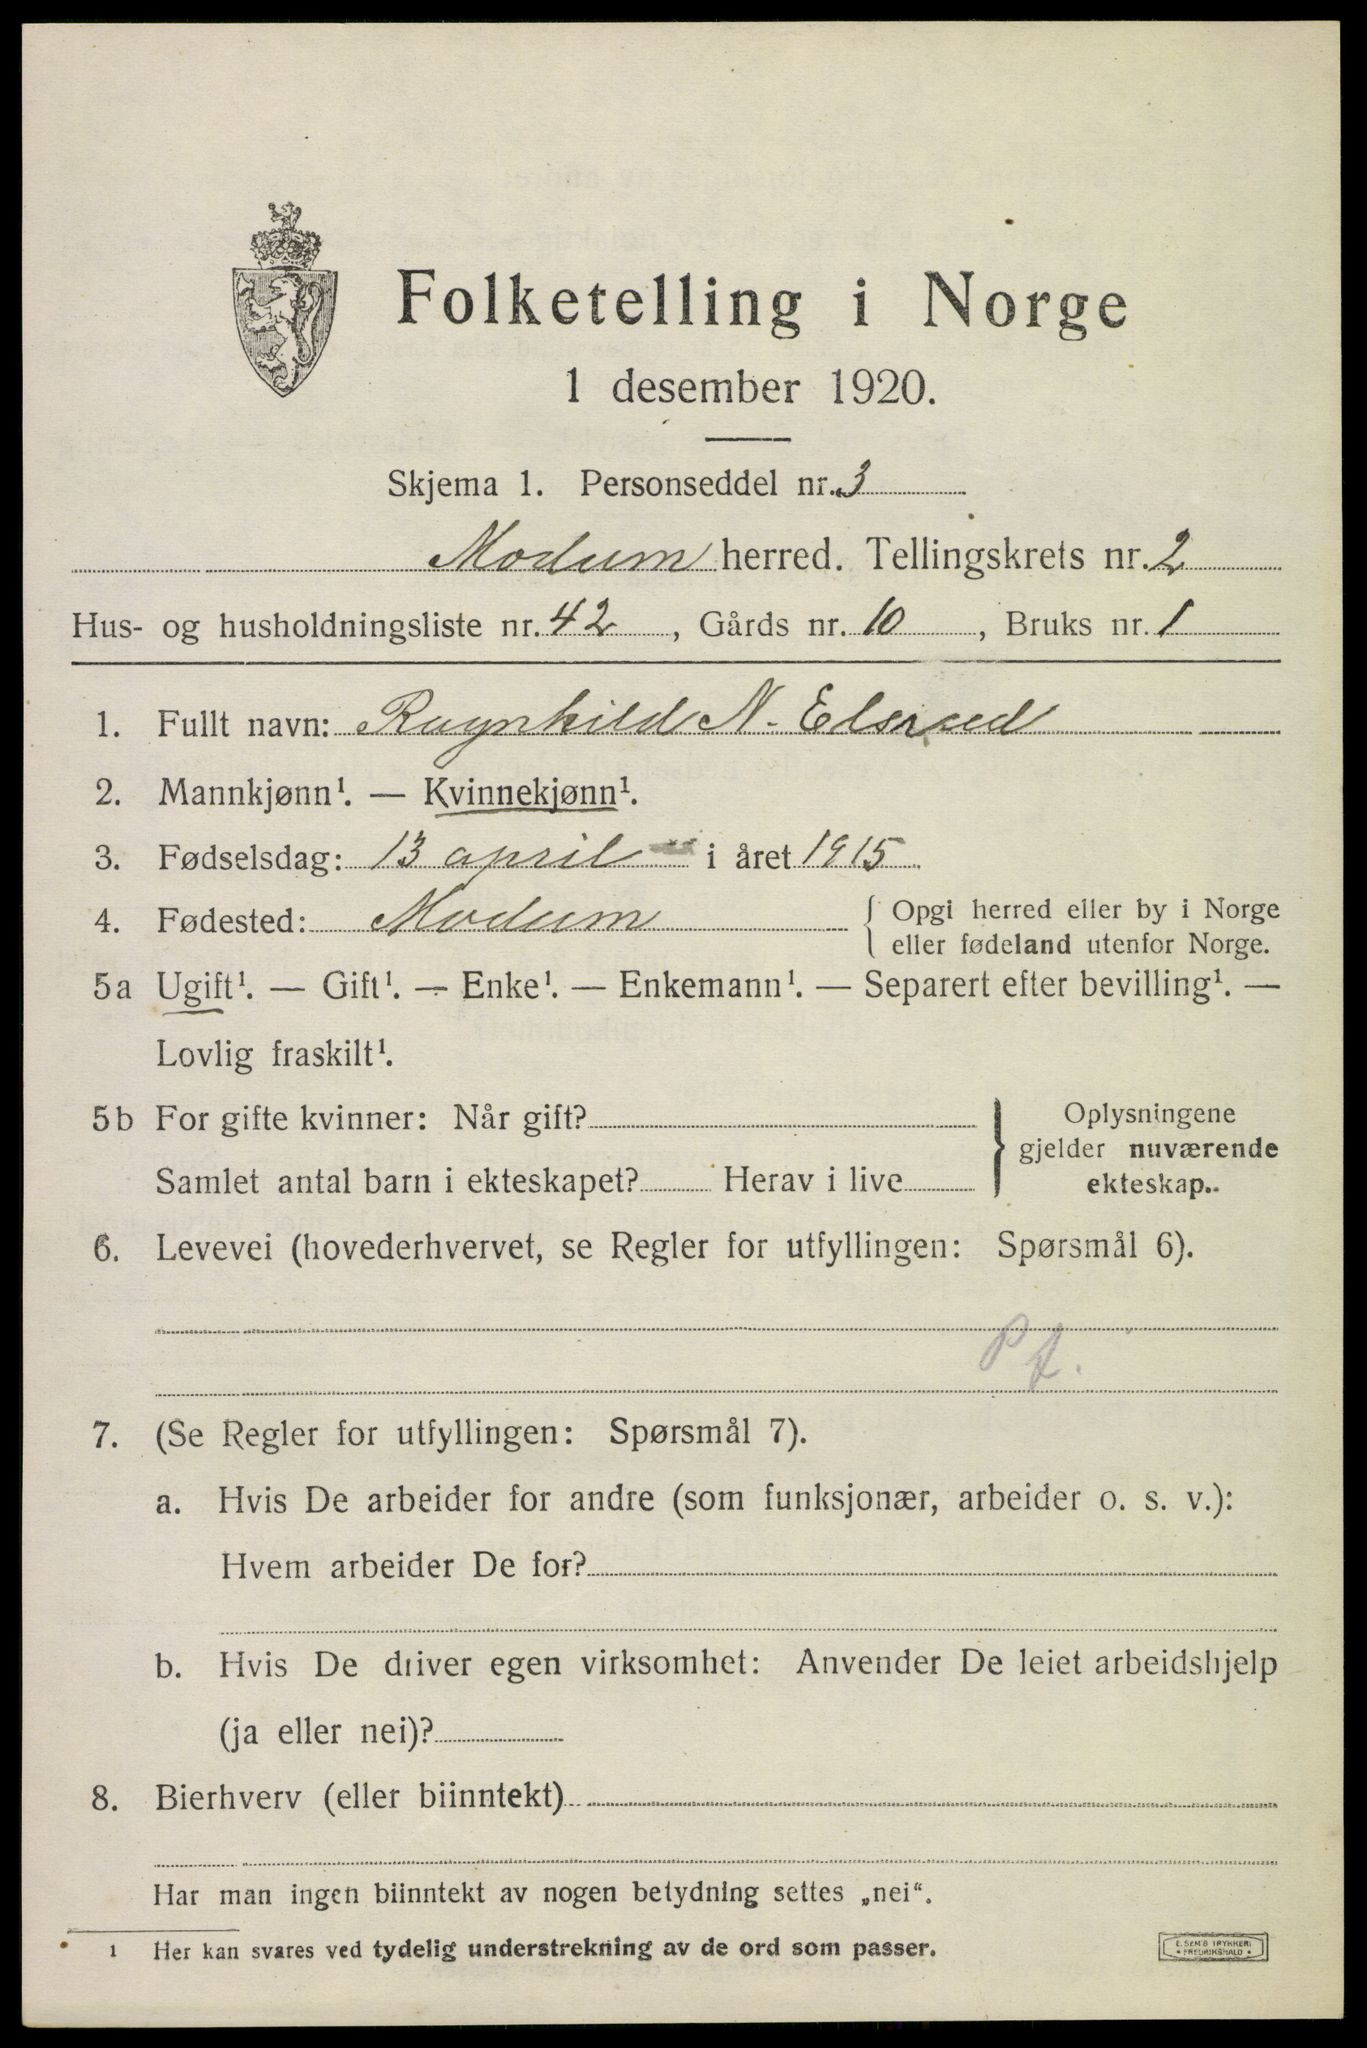 Folketelling i Norge
1 desember 1920.
Skjema 1. Personseddel nr. 3
Modum herred. Tellingskrets nr. 2
Hus- og husholdningsliste nr. 42, Gårds nr. 10, Bruks nr. 1
1. Fullt navn: Ragnhild N. Elsraed
2. Mannkjønn¹. — Kvinnekjønn¹.
3. Fødselsdag: 13 april i året 1915.
4. Fødested: Modum { Opgi herred eller by i Norge
eller fødeland utenfor Norge.
5a Ugift¹. — Gift¹. — Enke¹. — Enkemann¹. — Separert efter bevilling¹. —
Lovlig fraskilt¹.
5b For gifte kvinner: Når gift? } Oplysningene
gjelder nuværende
Samlet antal barn i ekteskapet? Herav i live ekteskap.
6. Levevei (hovederhvervet, se Regler for utfyllingen: Spørsmål 6).
Pf.
7. (Se Regler for utfyllingen: Spørsmål 7).
a. Hvis De arbeider for andre (som funksjonær, arbeider o. s. v.):
Hvem arbeider De for?
b. Hvis De driver egen virksomhet: Anvender De leiet arbeidshjelp
(ja eller nei)?
8. Bierhverv (eller biinntekt)
Har man ingen biinntekt av nogen betydning settes „nei“.
1 Her kan svares ved tydelig understrekning av de ord som passer.
E. SEM'S TRYKKERI
• FREDRIKSHALD •